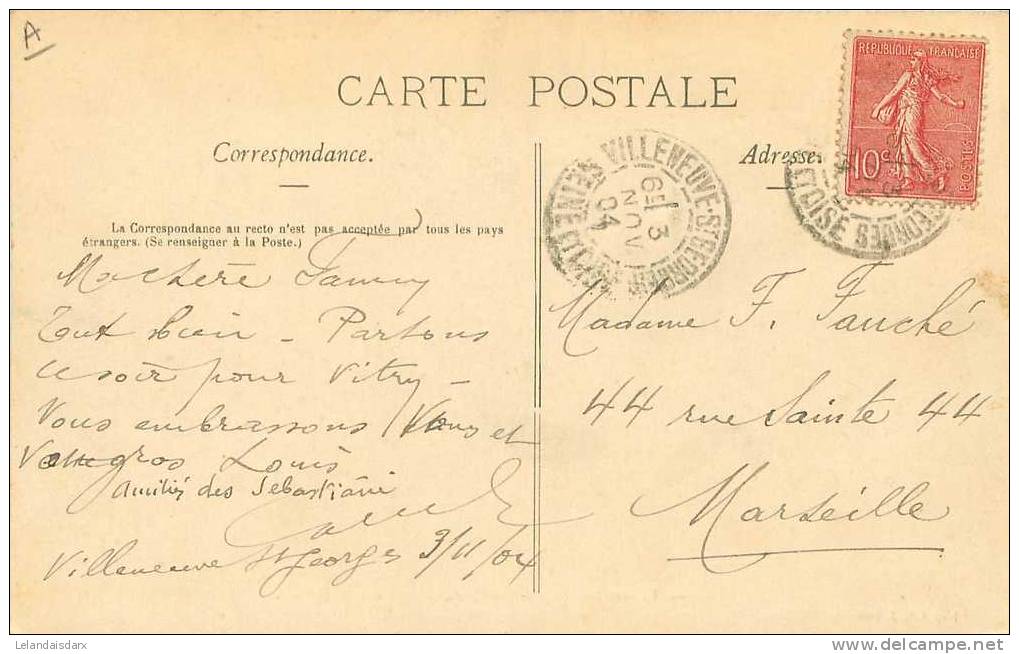 A
CARTE POSTALE
RÉPUBLIQUE FRANÇAISE
10c
POSTES
Correspondance.
Adresse
VILLENEUVE-ST GEORGES
SEINE ET OISE
6E
3
NOV
04
La Correspondance au recto n'est pas acceptée par tous les pays
étrangers. (Se renseigner à la Poste.)
Ma chère
Tout bien - Partons
ce soir pour Vitry -
Vous embrassons Vous et
gros Louis
Amitiés des Sebastiani
Villeneuve St Georges 3/11/04
Madame F. Fauché
44 rue Sainte 44
Marseille
Lelandaisdarx
www.delcampe.net